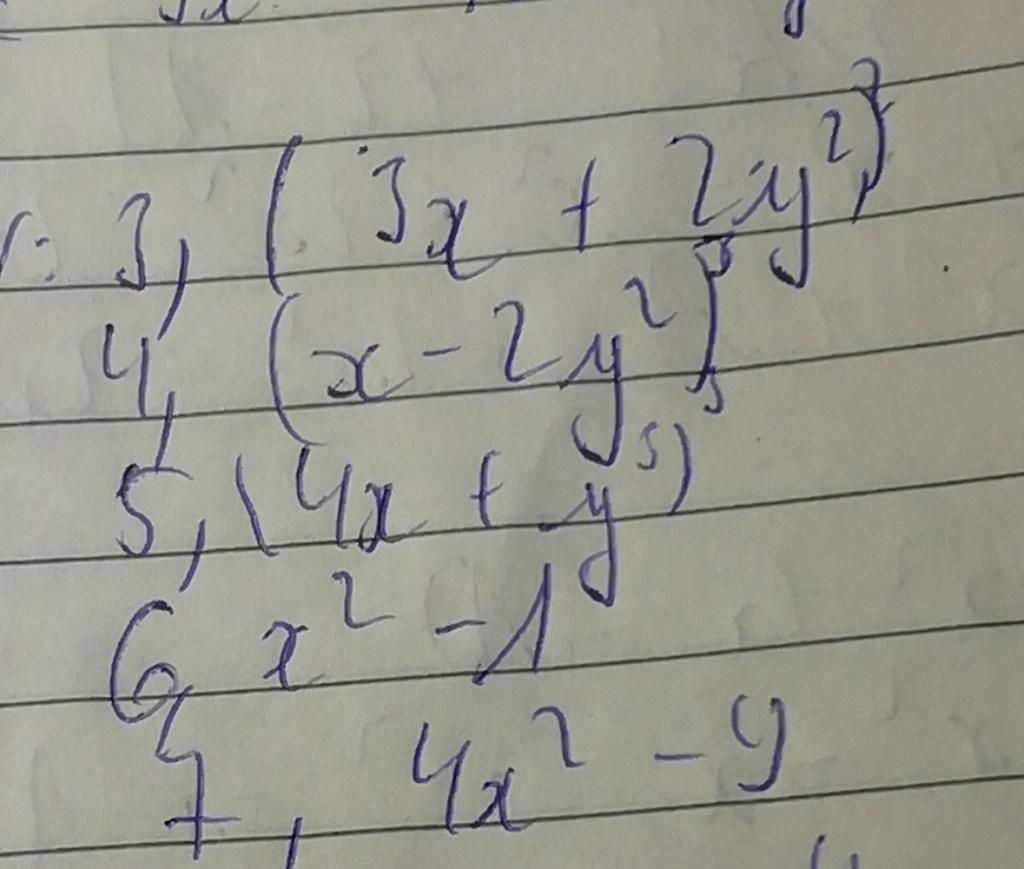 3, (3x + 2y²)²
4, (x - 2y²)³
5, (4x + y³)
6, x² - 1
7, 4x² - 9